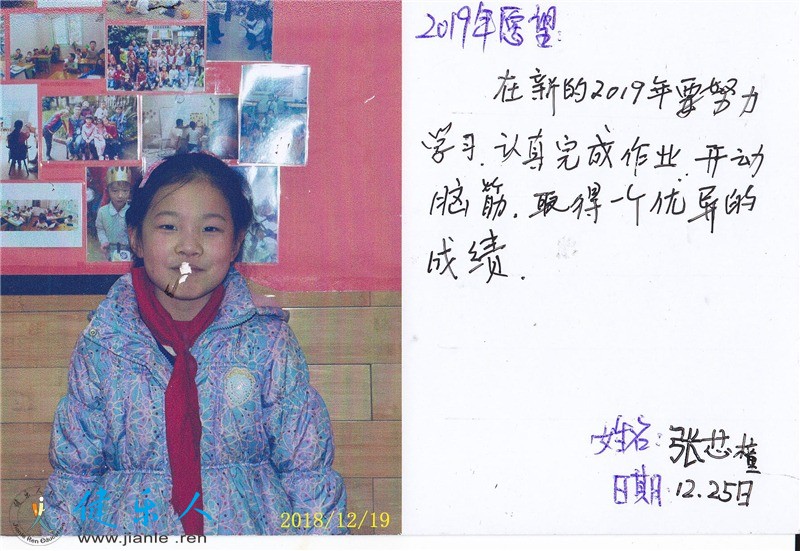 2019年愿望:
在新的2019年要努力
学习.认真完成作业.开动
脑筋.取得一个优异的
成绩.
姓名:张芯橦
日期:12.25日
2018/12/19
健乐人
www.jianle.ren